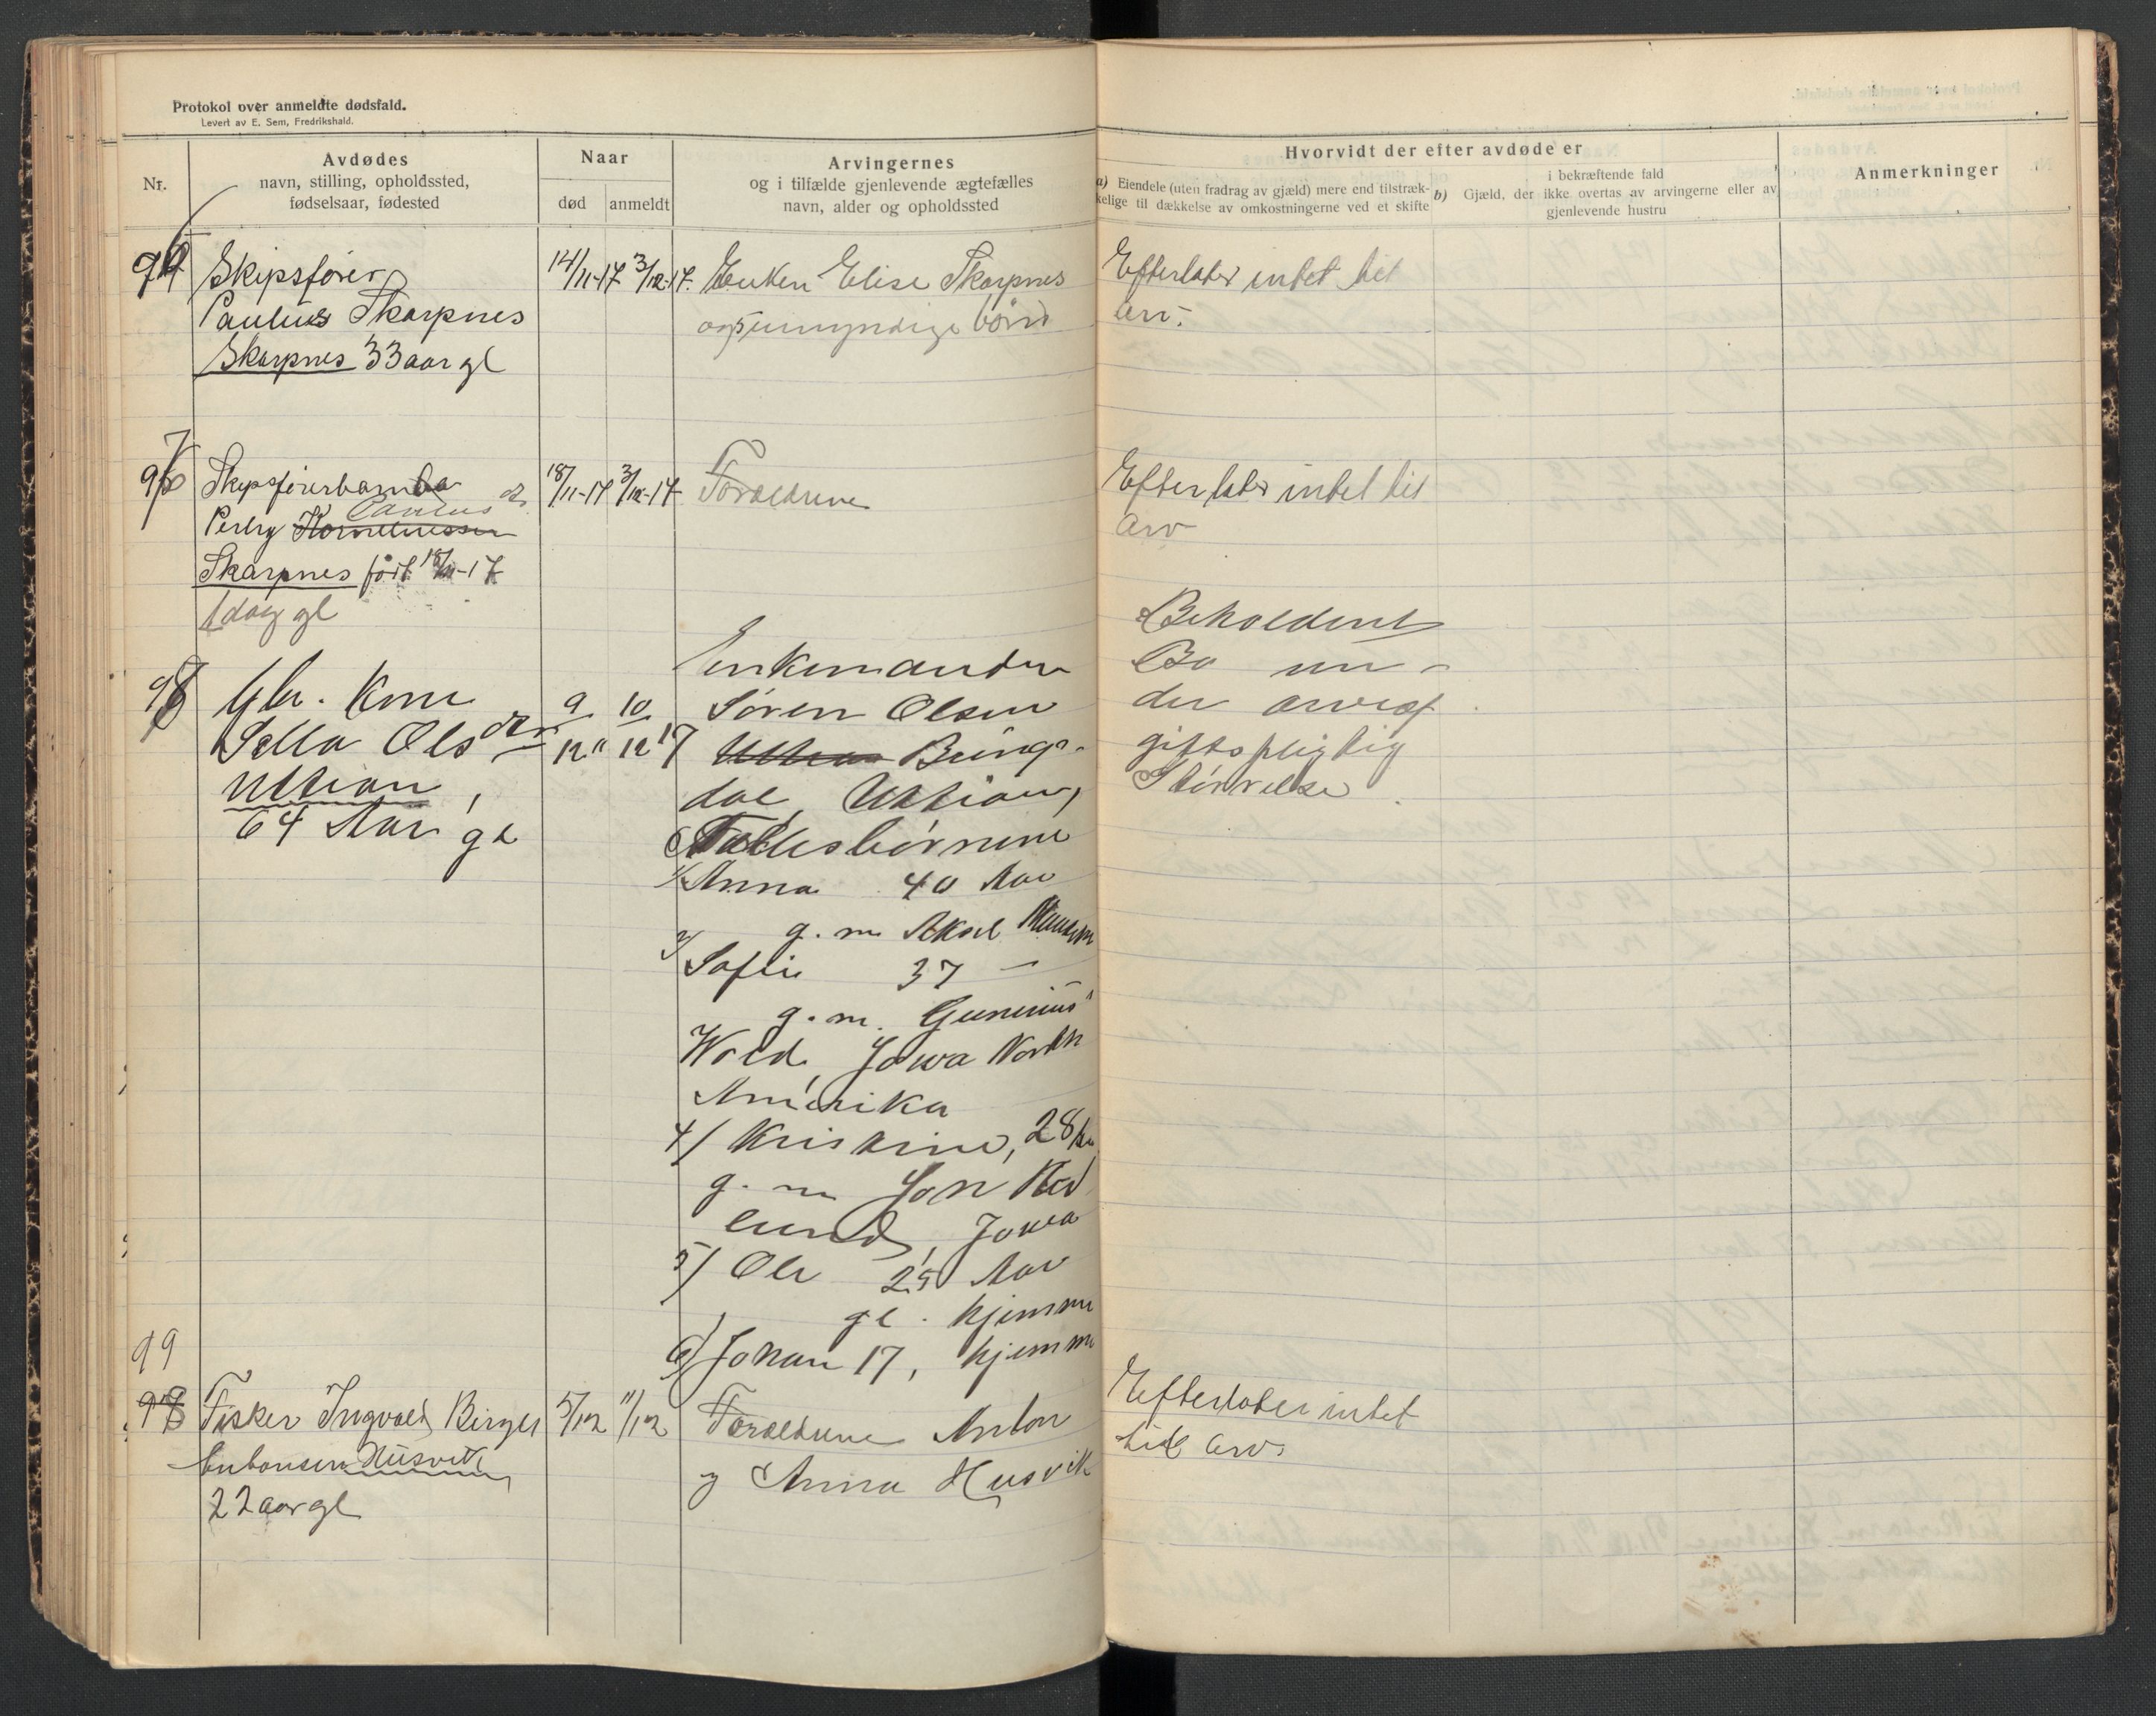 Protokol over anmeldte dødsfald.
Levert av E. Sem, Fredrikshald.
Nr.
Avdødes
navn, stilling, opholdssted,
fødselsaar, fødested
Naar
død anmeldt
Arvingernes
og i tilfælde gjenlevende ægtefælles
navn, alder og opholdssted
Hvorvidt der efter avdøde er
a) Eiendele (uten fradrag av gjæld) mere end tilstræk-
kelige til dækkelse av omkostningerne ved et skifte
i bekræftende fald
b) Gjæld, der ikke overtas av arvingerne eller av
gjenlevende hustru
Anmerkninger
96
Skipsfører
Paulus Skarpnes
Skarpnes 33 aar gl
14/11-17 3/12-17.
Enken Elise Skarpnes
og 5 umyndige børn
Efterlater intet til
arv.
97
Skipsførerbarn
Perlry Paulus Korneliussen
Skarpnes født 18/11-17
1 dag gl
18/11-17 3/12-17
Forældrene
Efterlater intet til
arv
98
Gbr. Kone
Sella Olsdtr
Uttian,
64 Aar gl
9/12 10/12 17
Enkemanden
Søren Olsen
Uttian Bring-
dal, Uttian,
Fællesbørnene
1/ Anna 40 Aar
g. m Aksel
2/ Sofie 37 —
g. m. Gunerius
Wold, Jowa North
Amerika
4/ Kristine, 28
g. m Jon
lund, Jowa
5/ Ole 25 Aar
gl. hjemme
6) Johan 17, hjemme
Beholdent
Bo un-
der arveaf
giftspligtig
Størrelse
99
98
Fisker Ingvald Birger
Antonsen Husvik
22 aar gl
5/12 11/12
Forældrene Anton
og Anna Husvik
Efterlater intet
til arv.